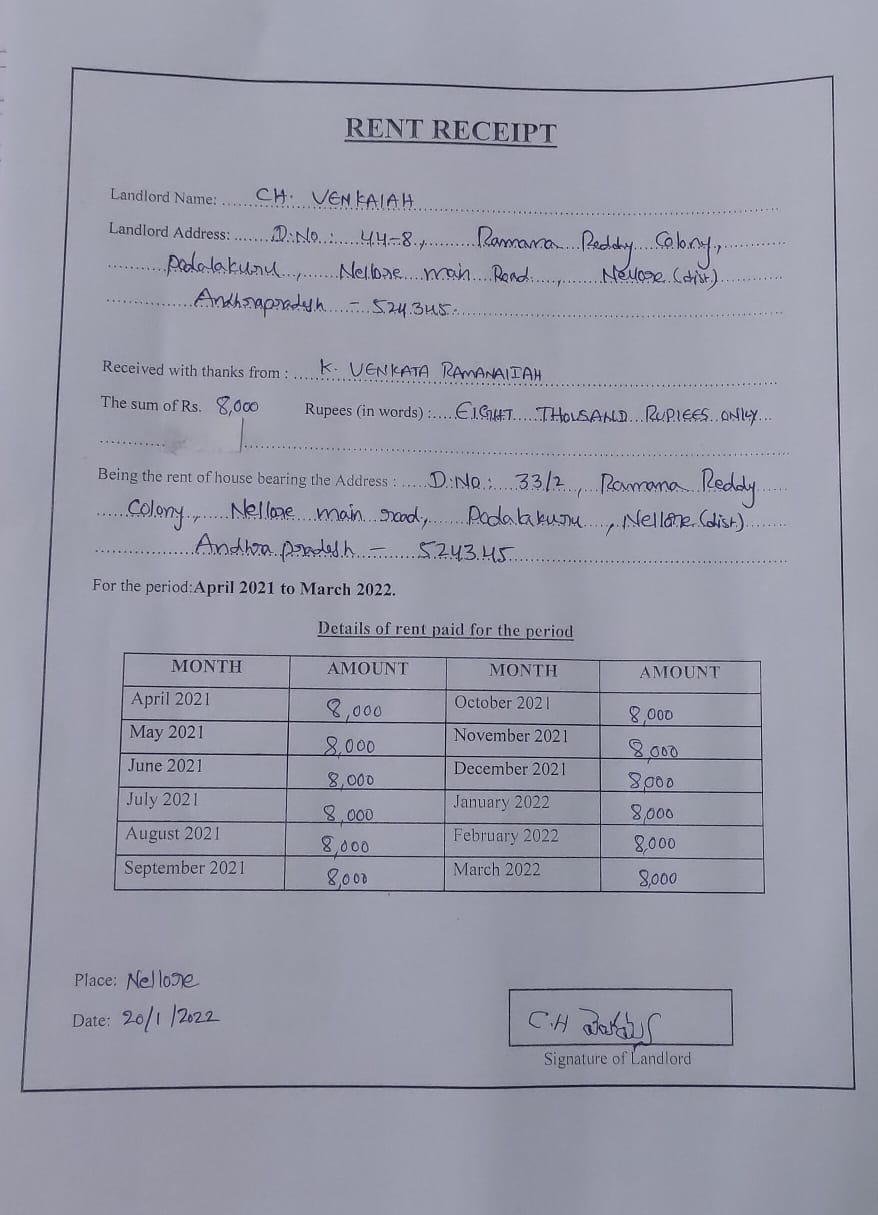 RENT RECEIPT
Landlord Name: CH. VENKAIAH
Landlord Address: D.No.: 44-8, Ramana Reddy Colony,
Podalakuru, Nellore main Road, Nellore (dist)
Andhrapradesh - 524345.
Received with thanks from : K. VENKATA RAMANAIAH
The sum of Rs. 8,000 Rupees (in words) : EIGHT THOUSAND RUPIEES ONLY
Being the rent of house bearing the Address : D.No.: 33/2, Ramana Reddy
Colony, Nellore main road, Podalakuru, Nellore (dist)
Andhra pradesh - 524345
For the period:April 2021 to March 2022.
Details of rent paid for the period
MONTH AMOUNT MONTH AMOUNT
April 2021 8,000 October 2021 8,000
May 2021 8,000 November 2021 8,000
June 2021 8,000 December 2021 8,000
July 2021 8,000 January 2022 8,000
August 2021 8,000 February 2022 8,000
September 2021 8,000 March 2022 8,000
Place: Nellore
Date: 20/1/2022
C.H
Signature of Landlord